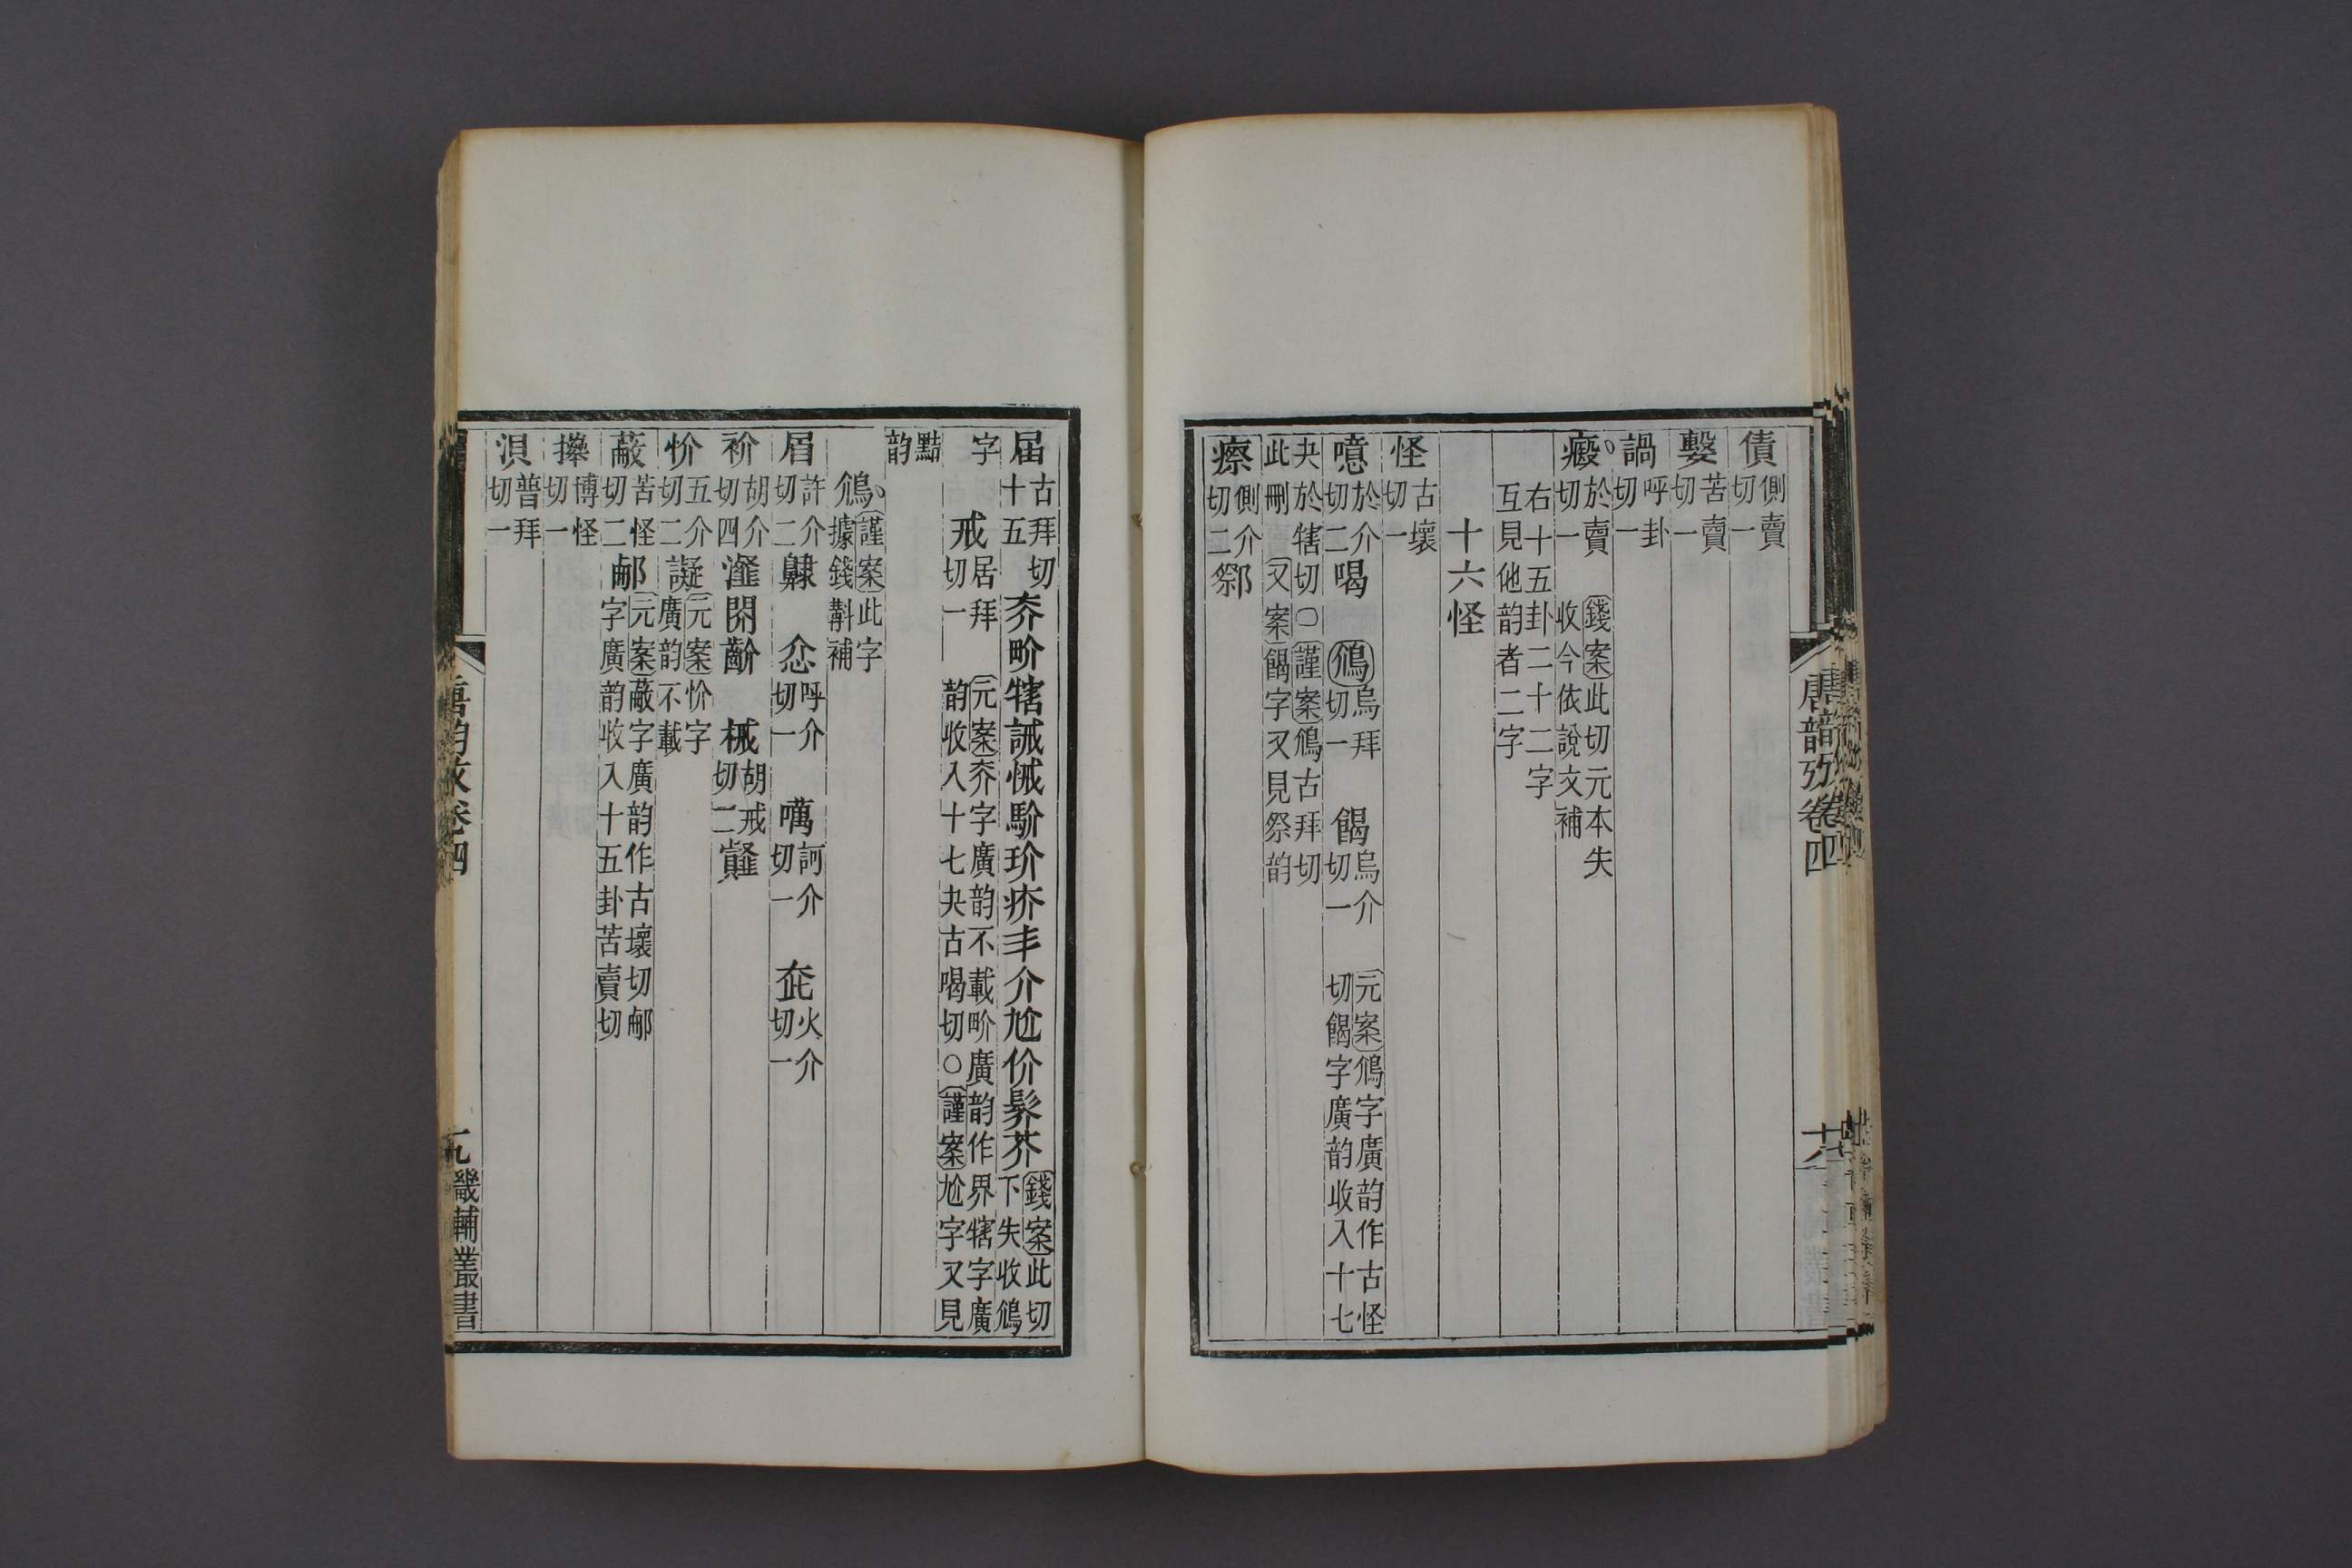 債側賣切一
㩻苦賣切一
諣呼卦切一
㿇於賣切一 錢案此切元本失收今依說文補
右十五卦二十二字互見他韵者二字
十六怪
怪古壞切一
噫於介切二喝 鳻烏拜切一 餲烏介切一 元案鳻字廣韵作古怪切餲字廣韵收入十七
夬於犗切○謹案鳻古拜切此刪又案餲字又見祭韵
瘵側介切二祭阝
唐韵攷卷四
十八
屆古拜切十五夰畍犗誡悈駴玠疥丯介尬价髸芥錢案此切下失收鳻
字 戒居拜切一 元案夰字廣韵不載畍廣韵作界犗字廣韵收入十七夬古喝切○謹案尬字又見
黠韵
鳻謹案此字據錢斠補
眉許介切二齂 忥呼介切一 噧訶介切一 㡿火介切一
衸胡介切四瀣閕齘 械胡戒切二𩐋
忦五介切二譺元案忦字廣韵不載
蔽苦怪切二郝元案蔽字廣韵作古壞切郝字廣韵收入十五卦苦賣切
𢳎博怪切一
湏普拜切一
唐韵攷卷四
九
畿輔叢書